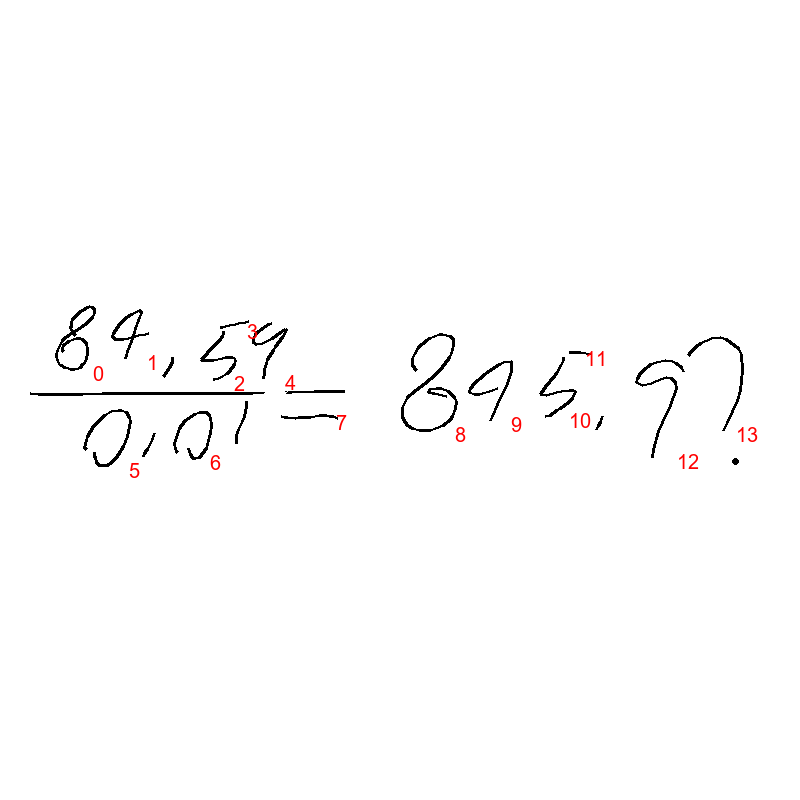 84,59
0,01
= 895,9?
0 1 2 3 4
5 6 7 8 9 10 11 12 13